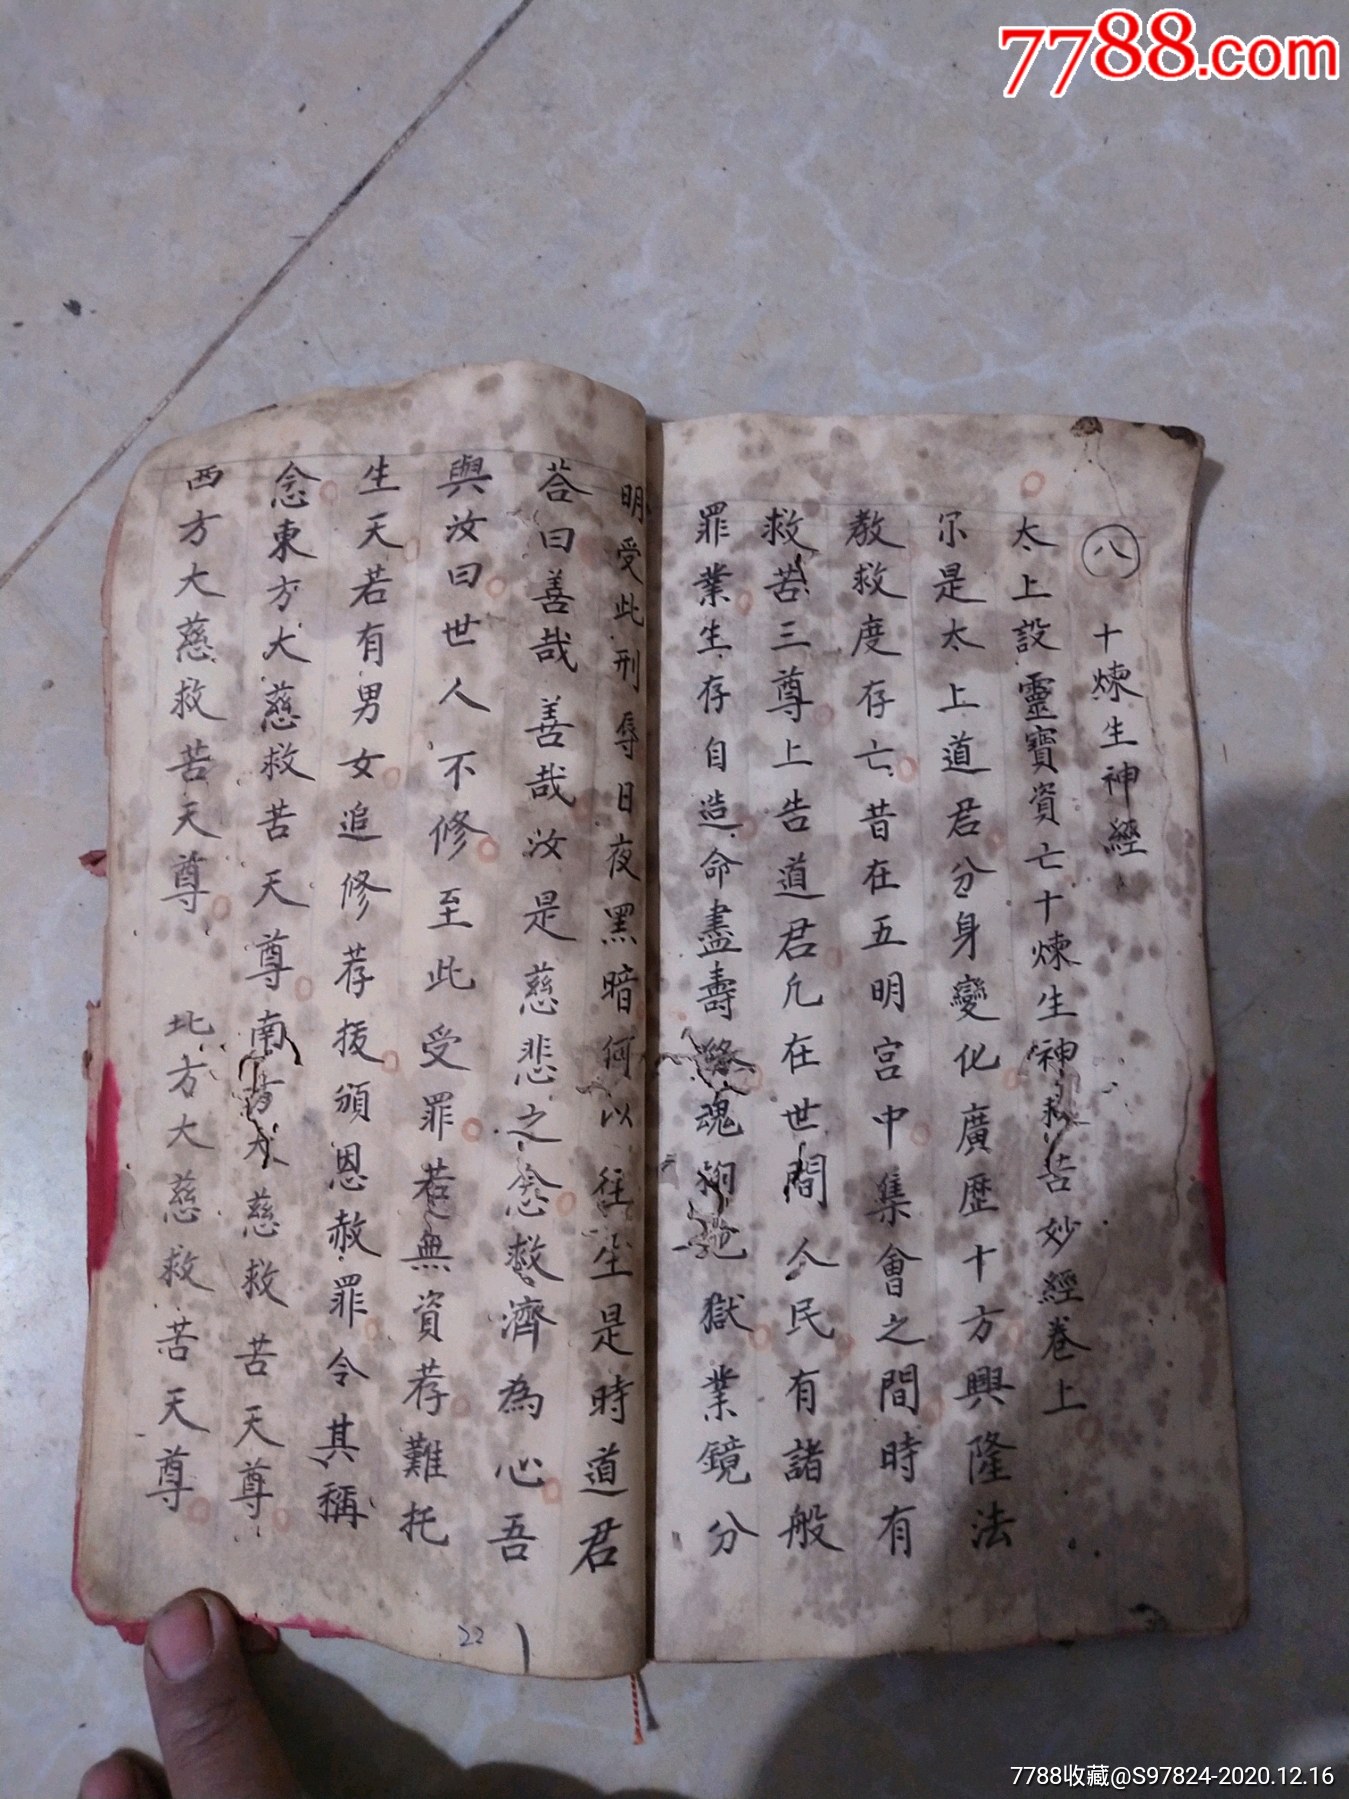 7788.com
八
十煉生神經
太上設靈寶資亡十煉生神救苦妙經卷上
尔是太上道君分身變化廣歷十方興隆法
教救度存亡昔在五明宮中集會之間時有
救苦三尊上告道君凢在世間人民有諸般
罪業生存自造命盡壽終魂 獄業鏡分
明受此刑辱日夜黑暗何以往生是時道君
荅曰善哉善哉汝是慈悲之念救濟為心吾
與汝曰世人不修至此受罪若無資荐難托
生天若有男女追修荐拔頒恩赦罪令其稱
念東方大慈救苦天尊南方大慈救苦天尊
西方大慈救苦天尊 北方大慈救苦天尊
22
7788收藏@S97824-2020.12.16